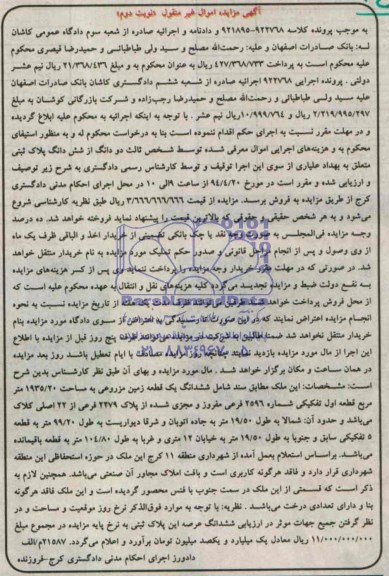 آگهی مزایده اموال غیر منقول (نوبت دوم)
به موجب پرونده کلاسه ۹۲۲۷۶۸-۹۲۱۸۹۵ و دادنامه و اجرائیه صادره از شعبه سوم دادگاه عمومی کاشان
له: بانک صادرات اصفهان و علیه: رحمت‌الله مصلح و سید ولی طباطبائی و حمیدرضا قیصری محکوم
علیه محکوم است به پرداخت ۴۲۷/۳۶۸/۷۳۳ ریال به عنوان محکوم به و مبلغ ۲۱/۳۶۸/۴۳۶ ریال نیم عشر
دولتی . پرونده اجرایی ۹۲۲۷۶۸ اجرائیه صادره از شعبه ششم دادگستری کاشان بانک صادرات اصفهان
علیه سید ولی طباطبائی و رحمت‌الله مصلح و حمیدرضا رجب‌زاده و شرکت بازرگانی کوشان به مبلغ
۲/۲۱۹/۹۹۵/۲۹۷ ریال و ۱۰/۹۹۹/۷۶۴ ریال نیم عشر . با توجه به اینکه اجرائیه به محکوم علیه ابلاغ گردیده
و در مهلت مقرر نسبت به اجرای حکم اقدام ننموده است بنا به درخواست محکوم له و به منظور استیفای
محکوم به و هزینه‌های اجرایی اموال معرفی شده توسط شخص ثالث دو دانگ از شش دانگ پلاک ثبتی
متعلق به بهداد علیاری از سوی این اجرا توقیف و توسط کارشناس رسمی دادگستری به شرح زیر توصیف
و ارزیابی شده و مقرر است در مورخ ۹۴/۴/۲۰ از ساعت ۹ الی ۱۰ در محل اجرای احکام مدنی دادگستری
کرج از طریق مزایده به فروش برسد. مزایده از قیمت ۳/۶۶۶/۶۶۶/۶۶۶ ریال طبق نظریه کارشناسی شروع
می‌شود و به هر شخص حقیقی و حقوقی که بالاترین قیمت را پیشنهاد نماید فروخته خواهد شد. ده درصد
وجه مزایده فی‌المجلس به صورت وجه نقد یا چک بانکی تضمینی از خریدار اخذ و الباقی ظرف یک ماه
از وی وصول و پس از انجام مراحل قانونی و صدور حکم تملیک مورد مزایده به نام خریدار منتقل خواهد
شد. در صورتی که در مهلت مقرر خریدار وجه مزایده را پرداخت ننماید وی پس از کسر هزینه‌های مزایده
به نفع دولت ضبط و مزایده تجدید می‌گردد کلیه هزینه‌های نقل و انتقال به عهده محکوم علیه است که
از محل فروش پرداخت خواهد شد از تاریخ مزایده نسبت به نحوه
انجام مزایده اعتراض نمایند که در این صورت تا رسیدگی به اعتراض از سوی دادگاه مورد مزایده بنام
خریدار منتقل نخواهد شد ضمنا طالبین به شرکت در مزایده می‌توانند ظرف پنج روز قبل از مزایده با اطلاع
این اجرا از مال مورد مزایده بازدید نمایند چنانچه روز مزایده مصادف با ایام تعطیل باشد روز بعد مزایده
در همان ساعت و مکان برگزار خواهد شد . مال مورد مزایده و بهای آن طبق نظر کارشناس بدین شرح
است: مشخصات: این ملک مطابق سند شامل ششدانگ یک قطعه زمین مزروعی به مساحت ۱۹۳۵/۲۰ متر
مربع قطعه اول تفکیکی شماره ۲۵۹۶ فرعی مفروز و مجزی شده از پلاک ۲۲۷۹ فرعی از ۲۲ اصلی کلاک
می‌باشد و حدود آن: شمالا به طول ۱۹/۵۰ متر به جاده اتوبان و شرقا دیواریست به طول ۹۹/۲۰ متر به قطعه
۵ تفکیکی سابق و جنوبا به طول ۱۹/۵۰ متر به خیابان ۱۲ متری و غربا به طول ۱۰۴/۸۰ متر به قطعه باقیمانده
می‌باشد. براساس استعلام بعمل آمده از شهرداری منطقه ۱۱ کرج این ملک در حوزه استحفاظی این منطقه
شهرداری قرار دارد و فاقد هرگونه کاربری است و بافت املاک مجاور آن صنعتی می‌باشد. همچنین لازم به
ذکر است که قسمتی از این ملک در سمت جنوب با فنس محصور گردیده است و این ملک فاقد هرگونه
بنا و دارای تعدادی درخت می‌باشد . نظریه: با توجه به موارد فوق‌الذکر نرخ روز موقعیت و مساحت و در
نظر گرفتن جمیع جهات موثر در ارزیابی ششدانگ عرصه این پلاک ثبتی به نرخ پایه مزایده در مجموع مبلغ
۱۱/۰۰۰/۰۰۰/۰۰۰ ریال معادل یک میلیارد و یکصد میلیون تومان برآورد و اعلام می‌گردد. ۲۱۵۸۷/م‌الف
دادورز اجرای احکام مدنی دادگستری کرج-فروزنده